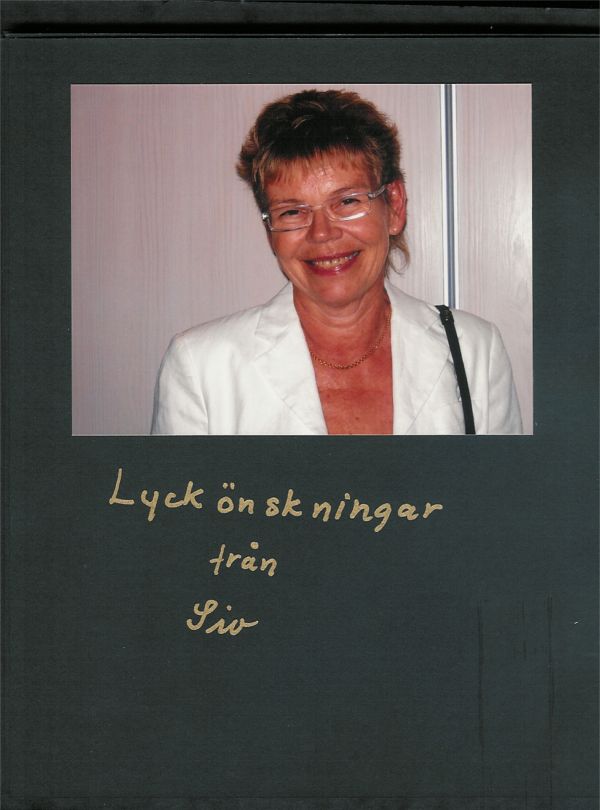 Lyckönskningar
från
Siv